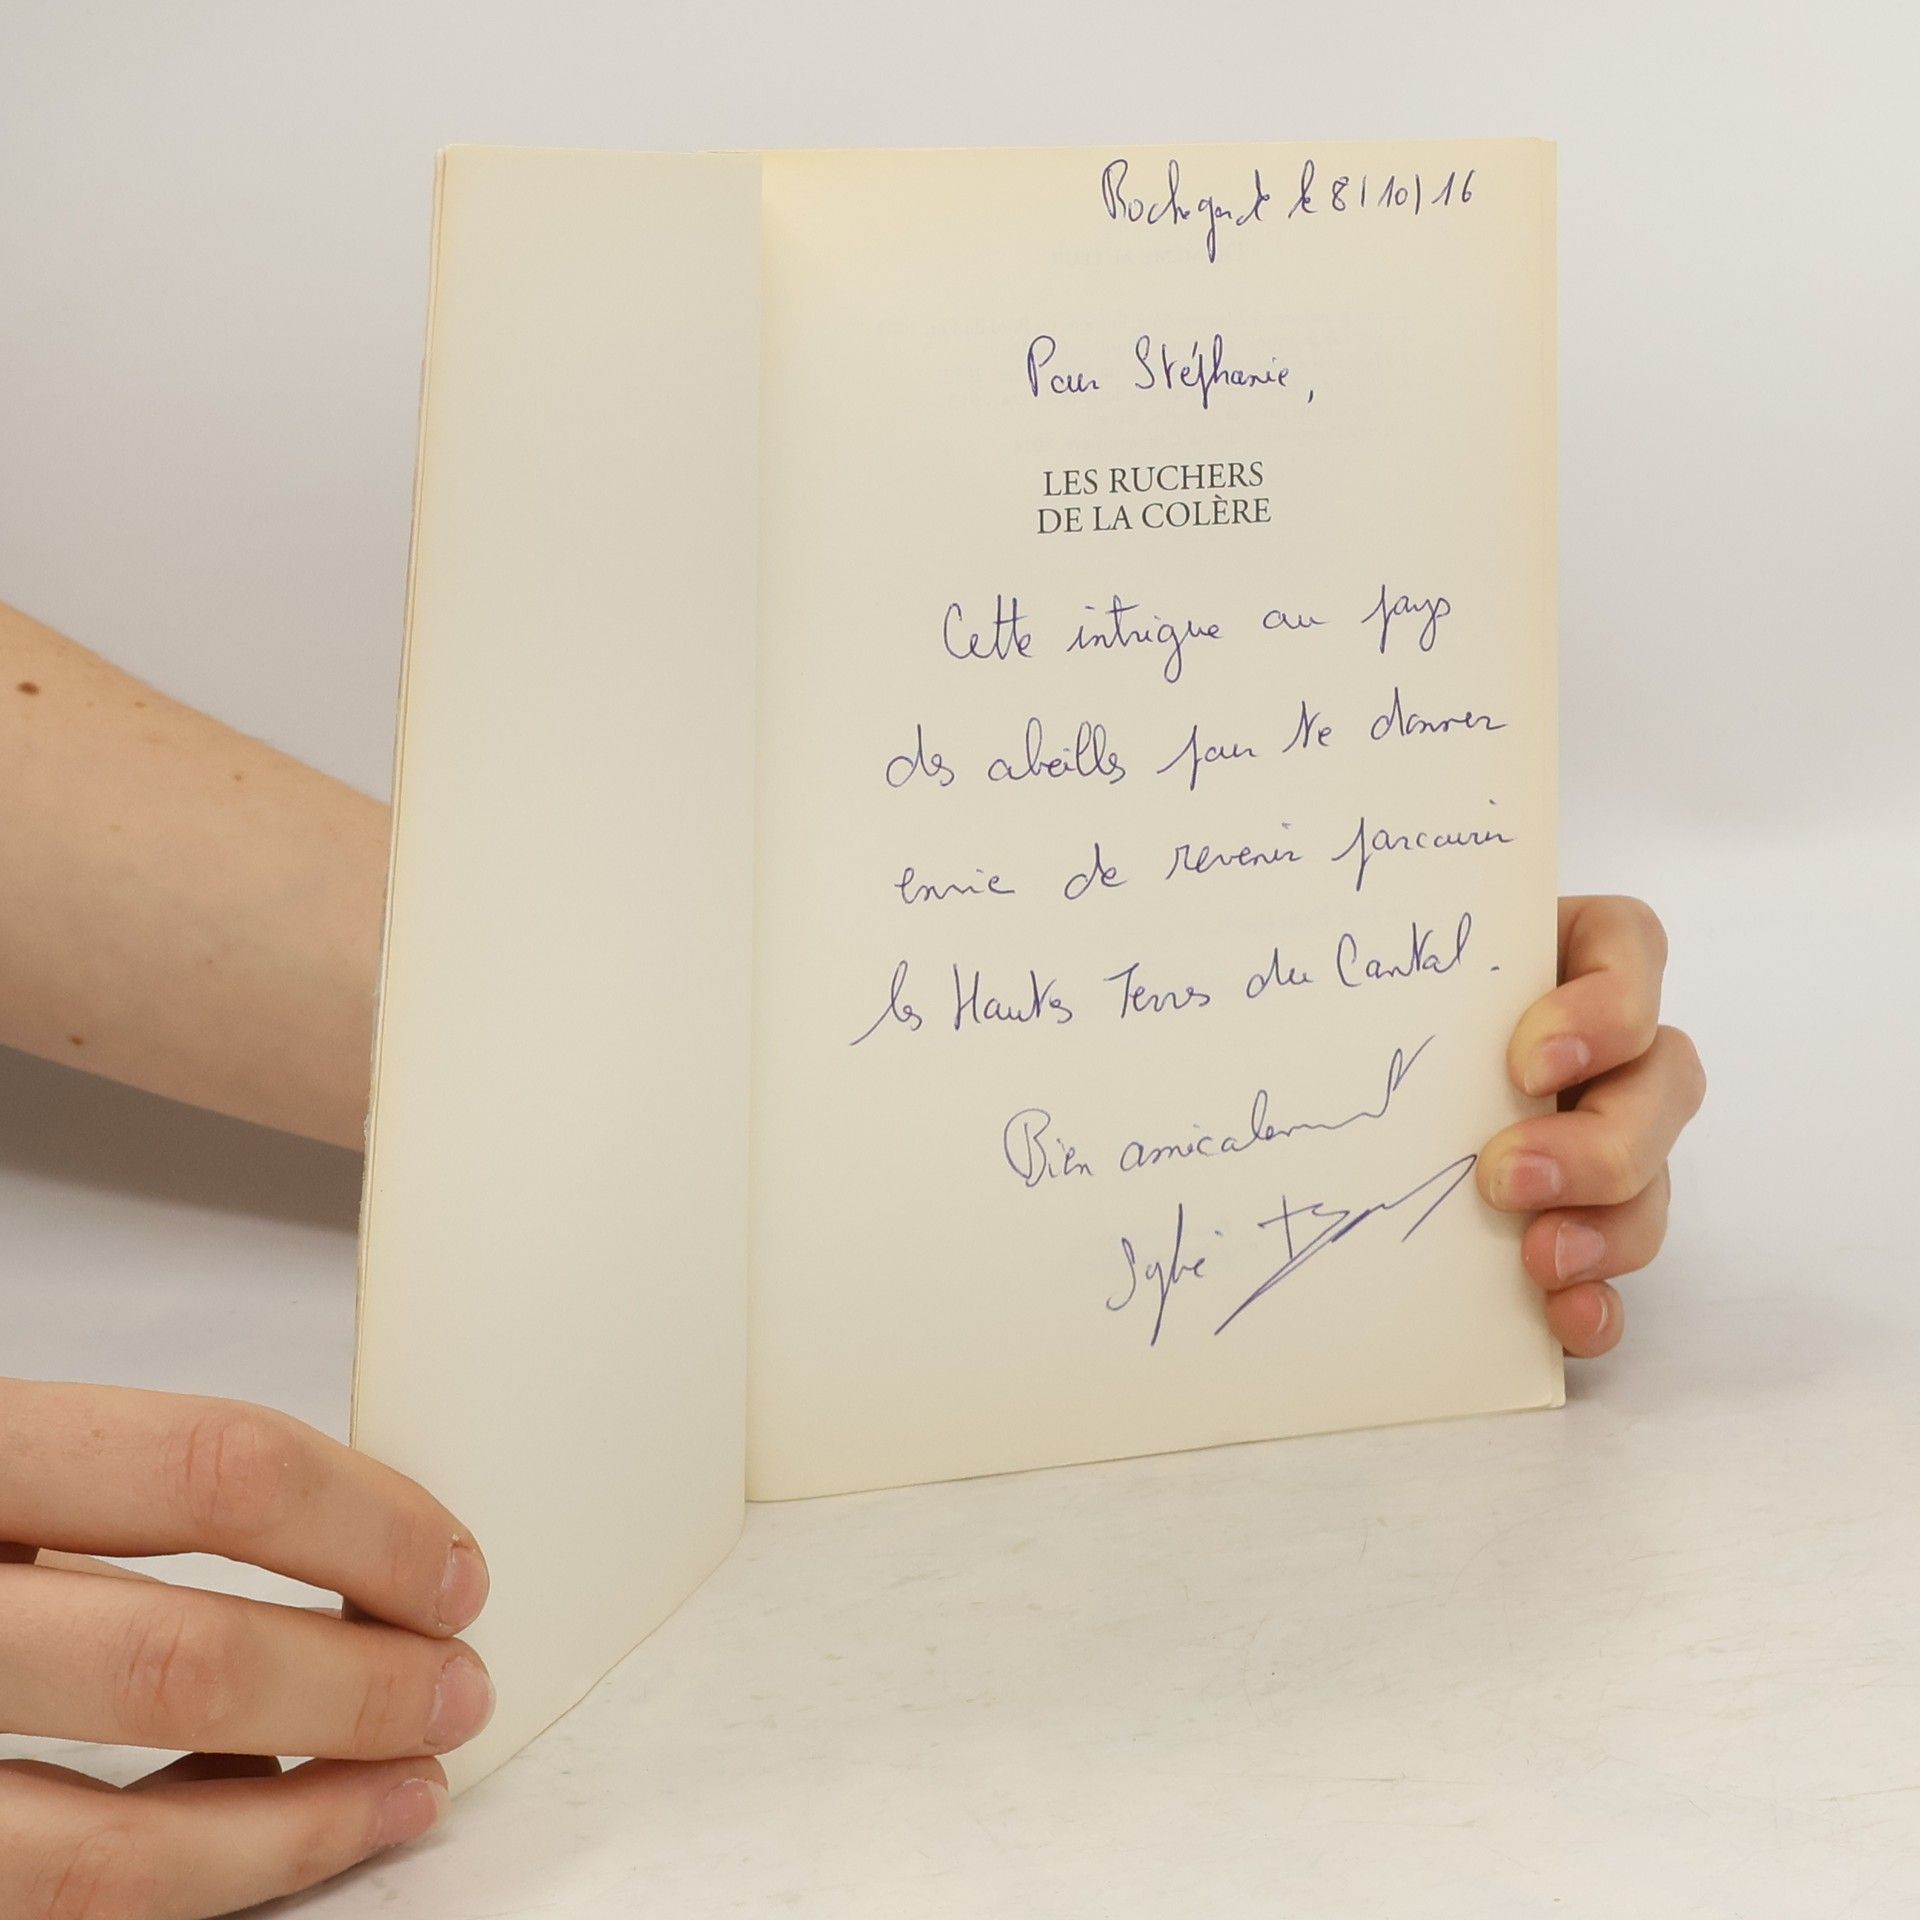 Rochegude le 8/10/16
Pour Stéphanie,
LES RUCHERS
DE LA COLÈRE
Cette intrigue au pays
des abeilles pour te donner
envie de revenir parcourir
les Hautes Terres du Cantal.
Bien amicalement
Sylvie